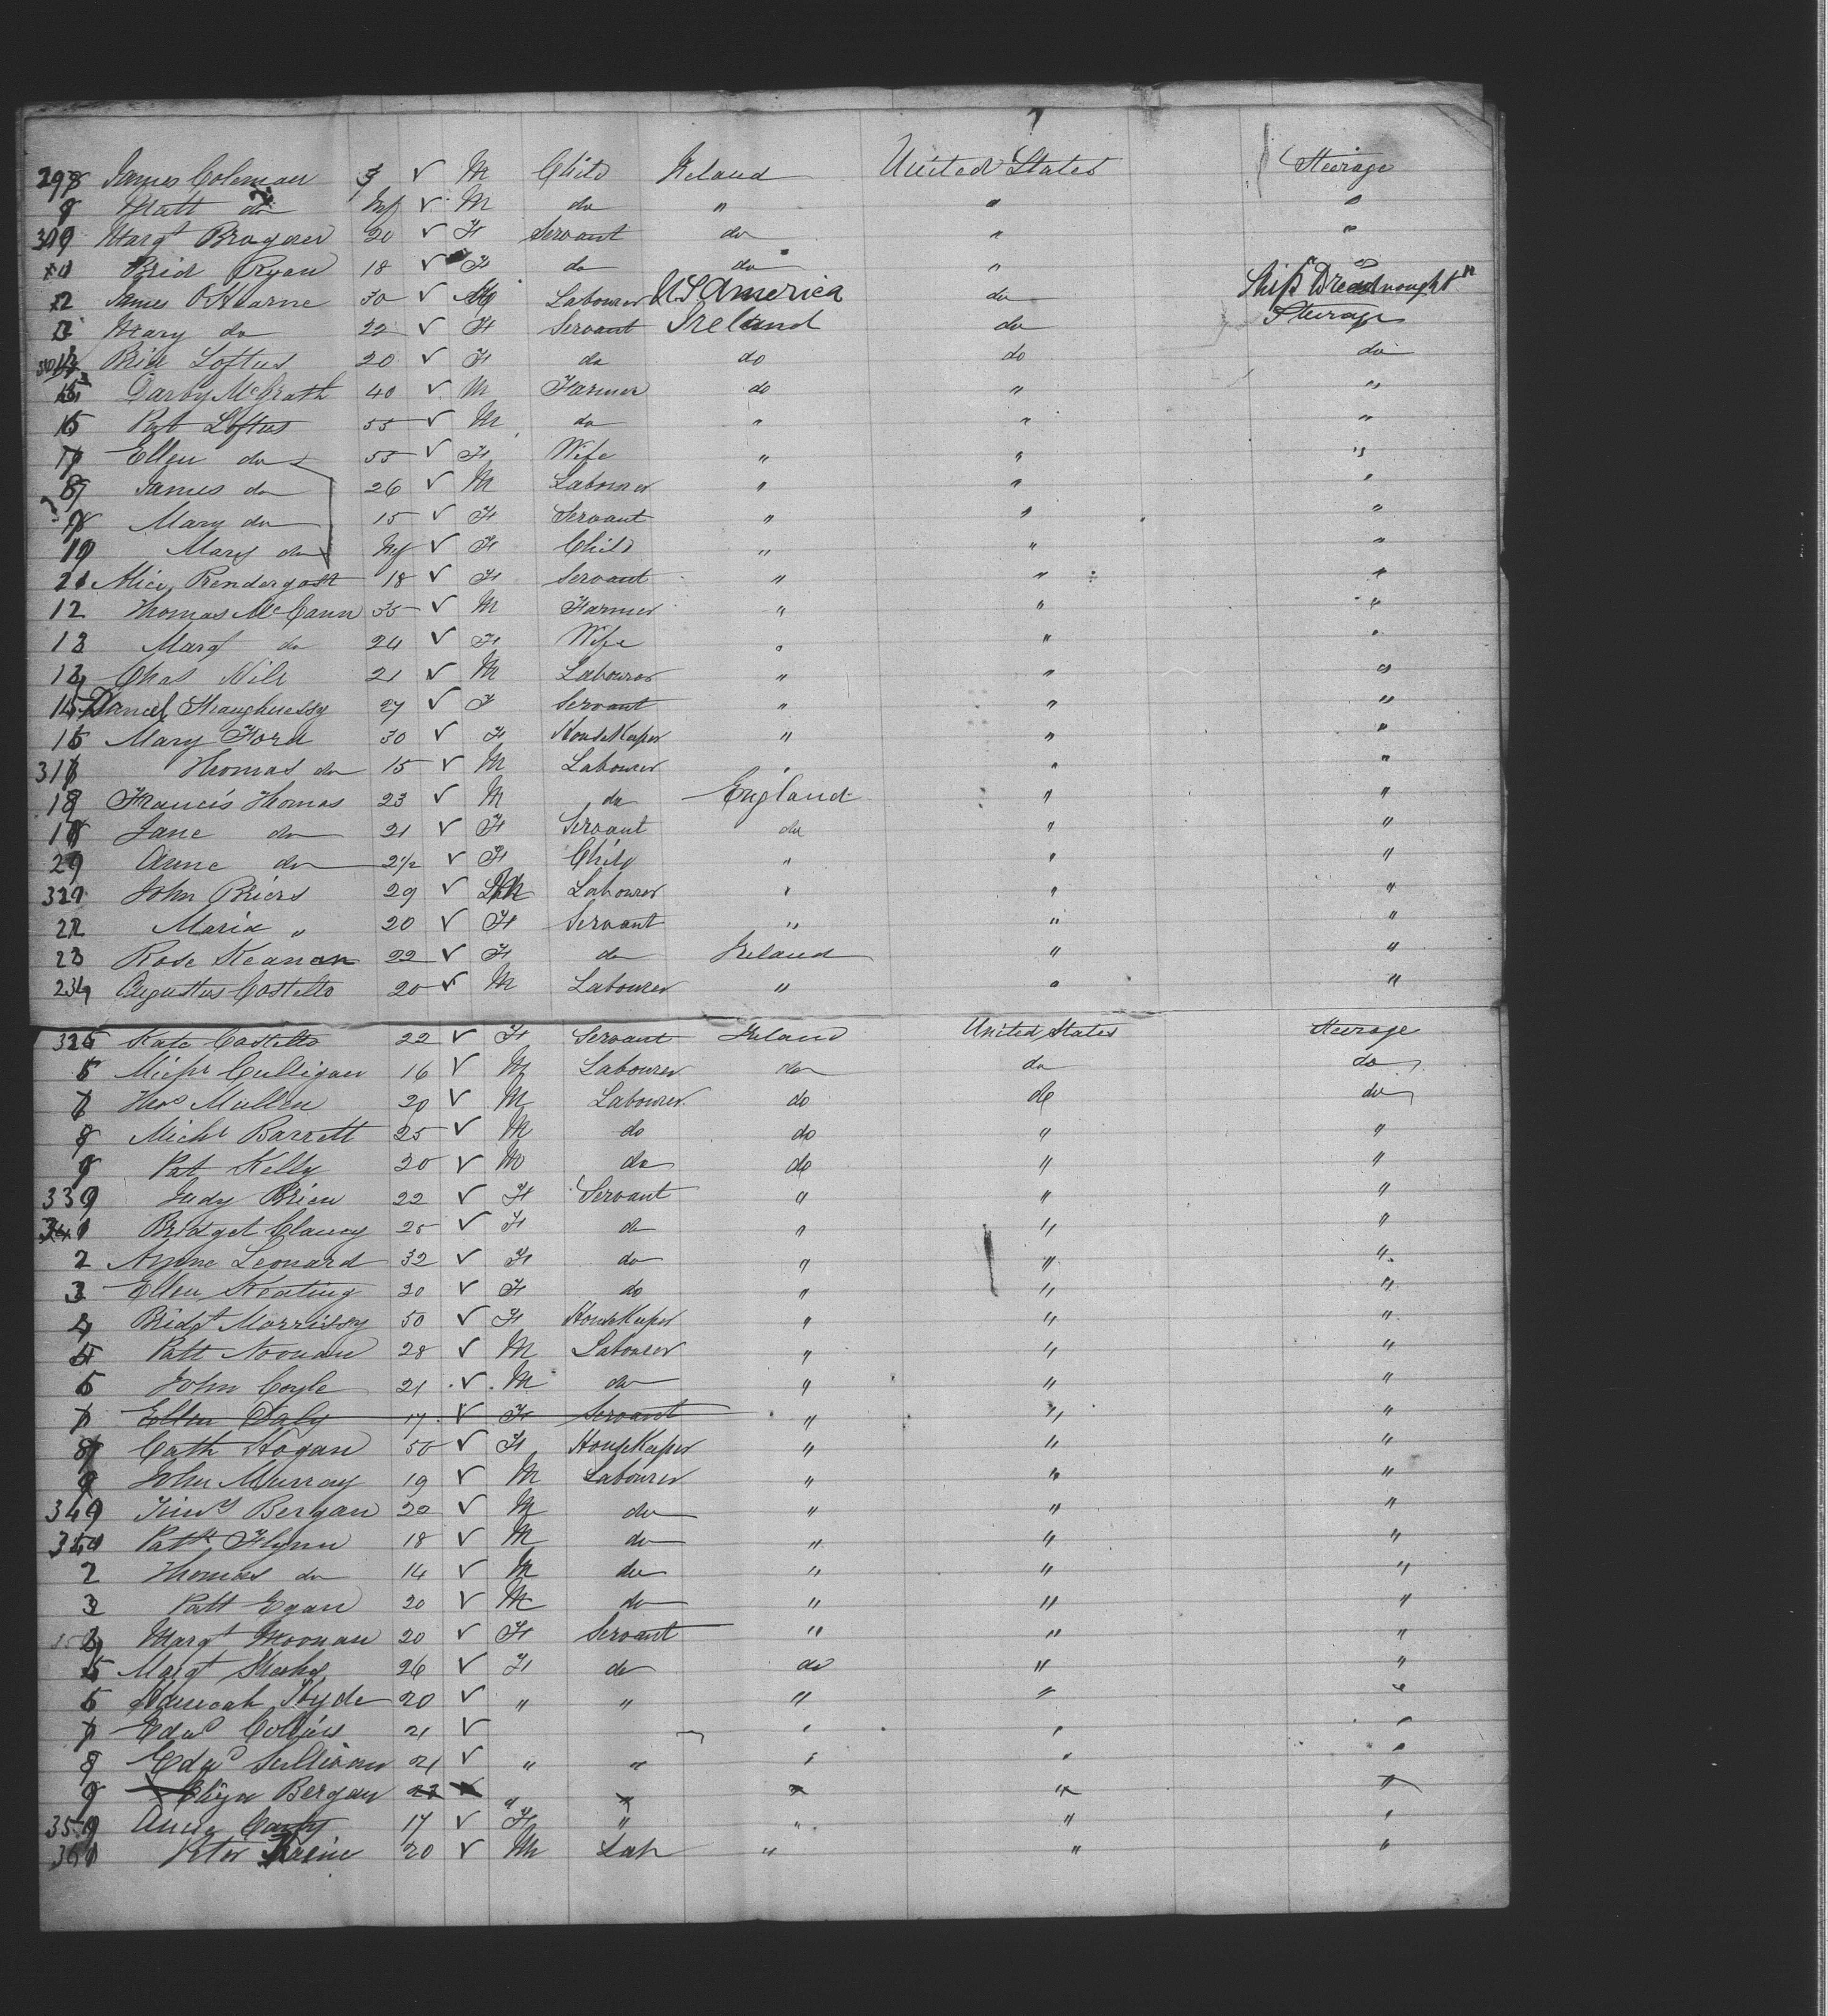 298 James Coleman 3 ✓ M Child Ireland United States Steerage
Matt do Inf ✓ M do " " "
Margt Brogan 20 ✓ F Servant do " "
Brid Ryan 18 ✓ F do do " do
2 James O'Hearne 30 ✓ M Labourer US America do Ship "Dreadnought"
3 Mary do 22 ✓ F Servant Ireland do Steerage
Brid Loftus 20 ✓ F do do do do
Darby McGrath 40 ✓ M Farmer do " "
Pat Loftus 55 ✓ M do " " "
Ellen do 55 ✓ F Wife " " "
James do 26 ✓ M Labourer " " "
Mary do 15 ✓ F Servant " " "
Mary do Inf ✓ F Child " " "
Alice Prendergast 18 ✓ F Servant " " "
12 Thomas McCann 35 ✓ M Farmer " " "
13 Margt do 24 ✓ F Wife " " "
Chas 21 ✓ M Labourer " " "
Daniel Shaughnessy 27 ✓ F Servant " " "
Mary Ford 30 ✓ F HouseKeeper " " "
Thomas do 15 ✓ M Labourer " " "
Francis Thomas 23 ✓ M do England " "
Jane do 21 ✓ F Servant do " "
Anne do 2½ ✓ F Child " " "
John Briers 29 ✓ M Labourer " " "
Maria " 20 ✓ F Servant " " "
23 Rose Keanan 22 ✓ F do Ireland " "
Augustus Costello 20 ✓ M Labourer " " "
325 Kate Costello 22 ✓ F Servant Ireland United States Steerage
Michl Culligan 16 ✓ M Labourer do do do
Thos Mullen 20 ✓ M Labourer do do do
8 Michl Barrett 25 ✓ M do do " "
Pat Kelly 20 ✓ M do do " "
Judy Brien 22 ✓ F Servant " " "
Bridget Clancy 25 ✓ F do " " "
2 Anne Leonard 32 ✓ F do " " "
3 Ellen Keating 20 ✓ F do " " "
4 Bridgt Morrissy 50 ✓ F HouseKeeper " " "
Patt Noonan 28 ✓ M Labourer " " "
John Coyle 21 ✓ M do " " "
Ellen Daly 17 ✓ F Servant " " "
8 Cath Hogan 50 ✓ F HouseKeeper " " "
9 John Murray 19 ✓ M Labourer " " "
349 Timy Bergan 22 ✓ M do " " "
Patk Flynn 18 ✓ M do " " "
2 Thomas do 14 ✓ M do " " "
3 Patt Egan 20 ✓ M do " " "
Margt Moonan 20 ✓ F Servant " " "
Margt Sheehy 26 ✓ F do do " "
Hannah Hyde 20 ✓ " " " " "
Edwd Collins 21 ✓ " " "
8 Edwd Sullivan 21 ✓ " " " " "
9 Eliza Bergan 22 " " " " "
Anne Carty 17 ✓ F " " " "
Peter 20 ✓ M Lab " " "